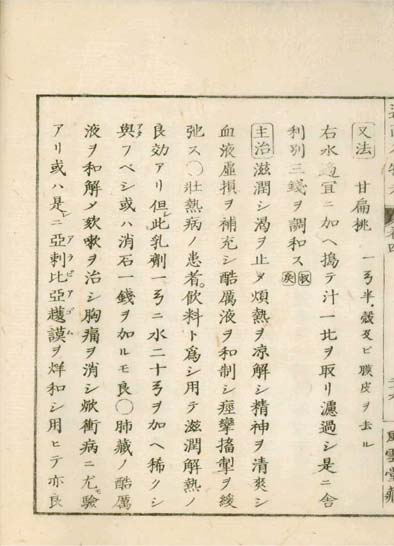 又法 甘扁桃 一弓半、殻及ビ膜皮ヲ去ル
右水適宜ニ加ヘ搗テ汁一比ヲ取リ濾過シ是ニ舎
利別三錢ヲ調和ス
主治 滋潤シ渇ヲ止メ煩熱ヲ凉解シ精神ヲ清爽シ
血液虛損ヲ補充シ酷厲液ヲ和制シ痙攣搐掣ヲ緩
弛ス〇壯熱病ノ患者。飲料ト爲シ用テ滋潤解熱ノ
良効アリ但シ此乳劑一弓ニ水二十弓ヲ加ヘ稀クシ
與フベシ或ハ消石一錢ヲ加ルモ良〇肺藏ノ酷厲
液ヲ和解メ欬嗽ヲ治シ胸痛ヲ消シ焮衝病ニ尤モ驗
アリ或ハ是レニ亞剌比亞護謨ヲ烊和シ用ヒテ亦良